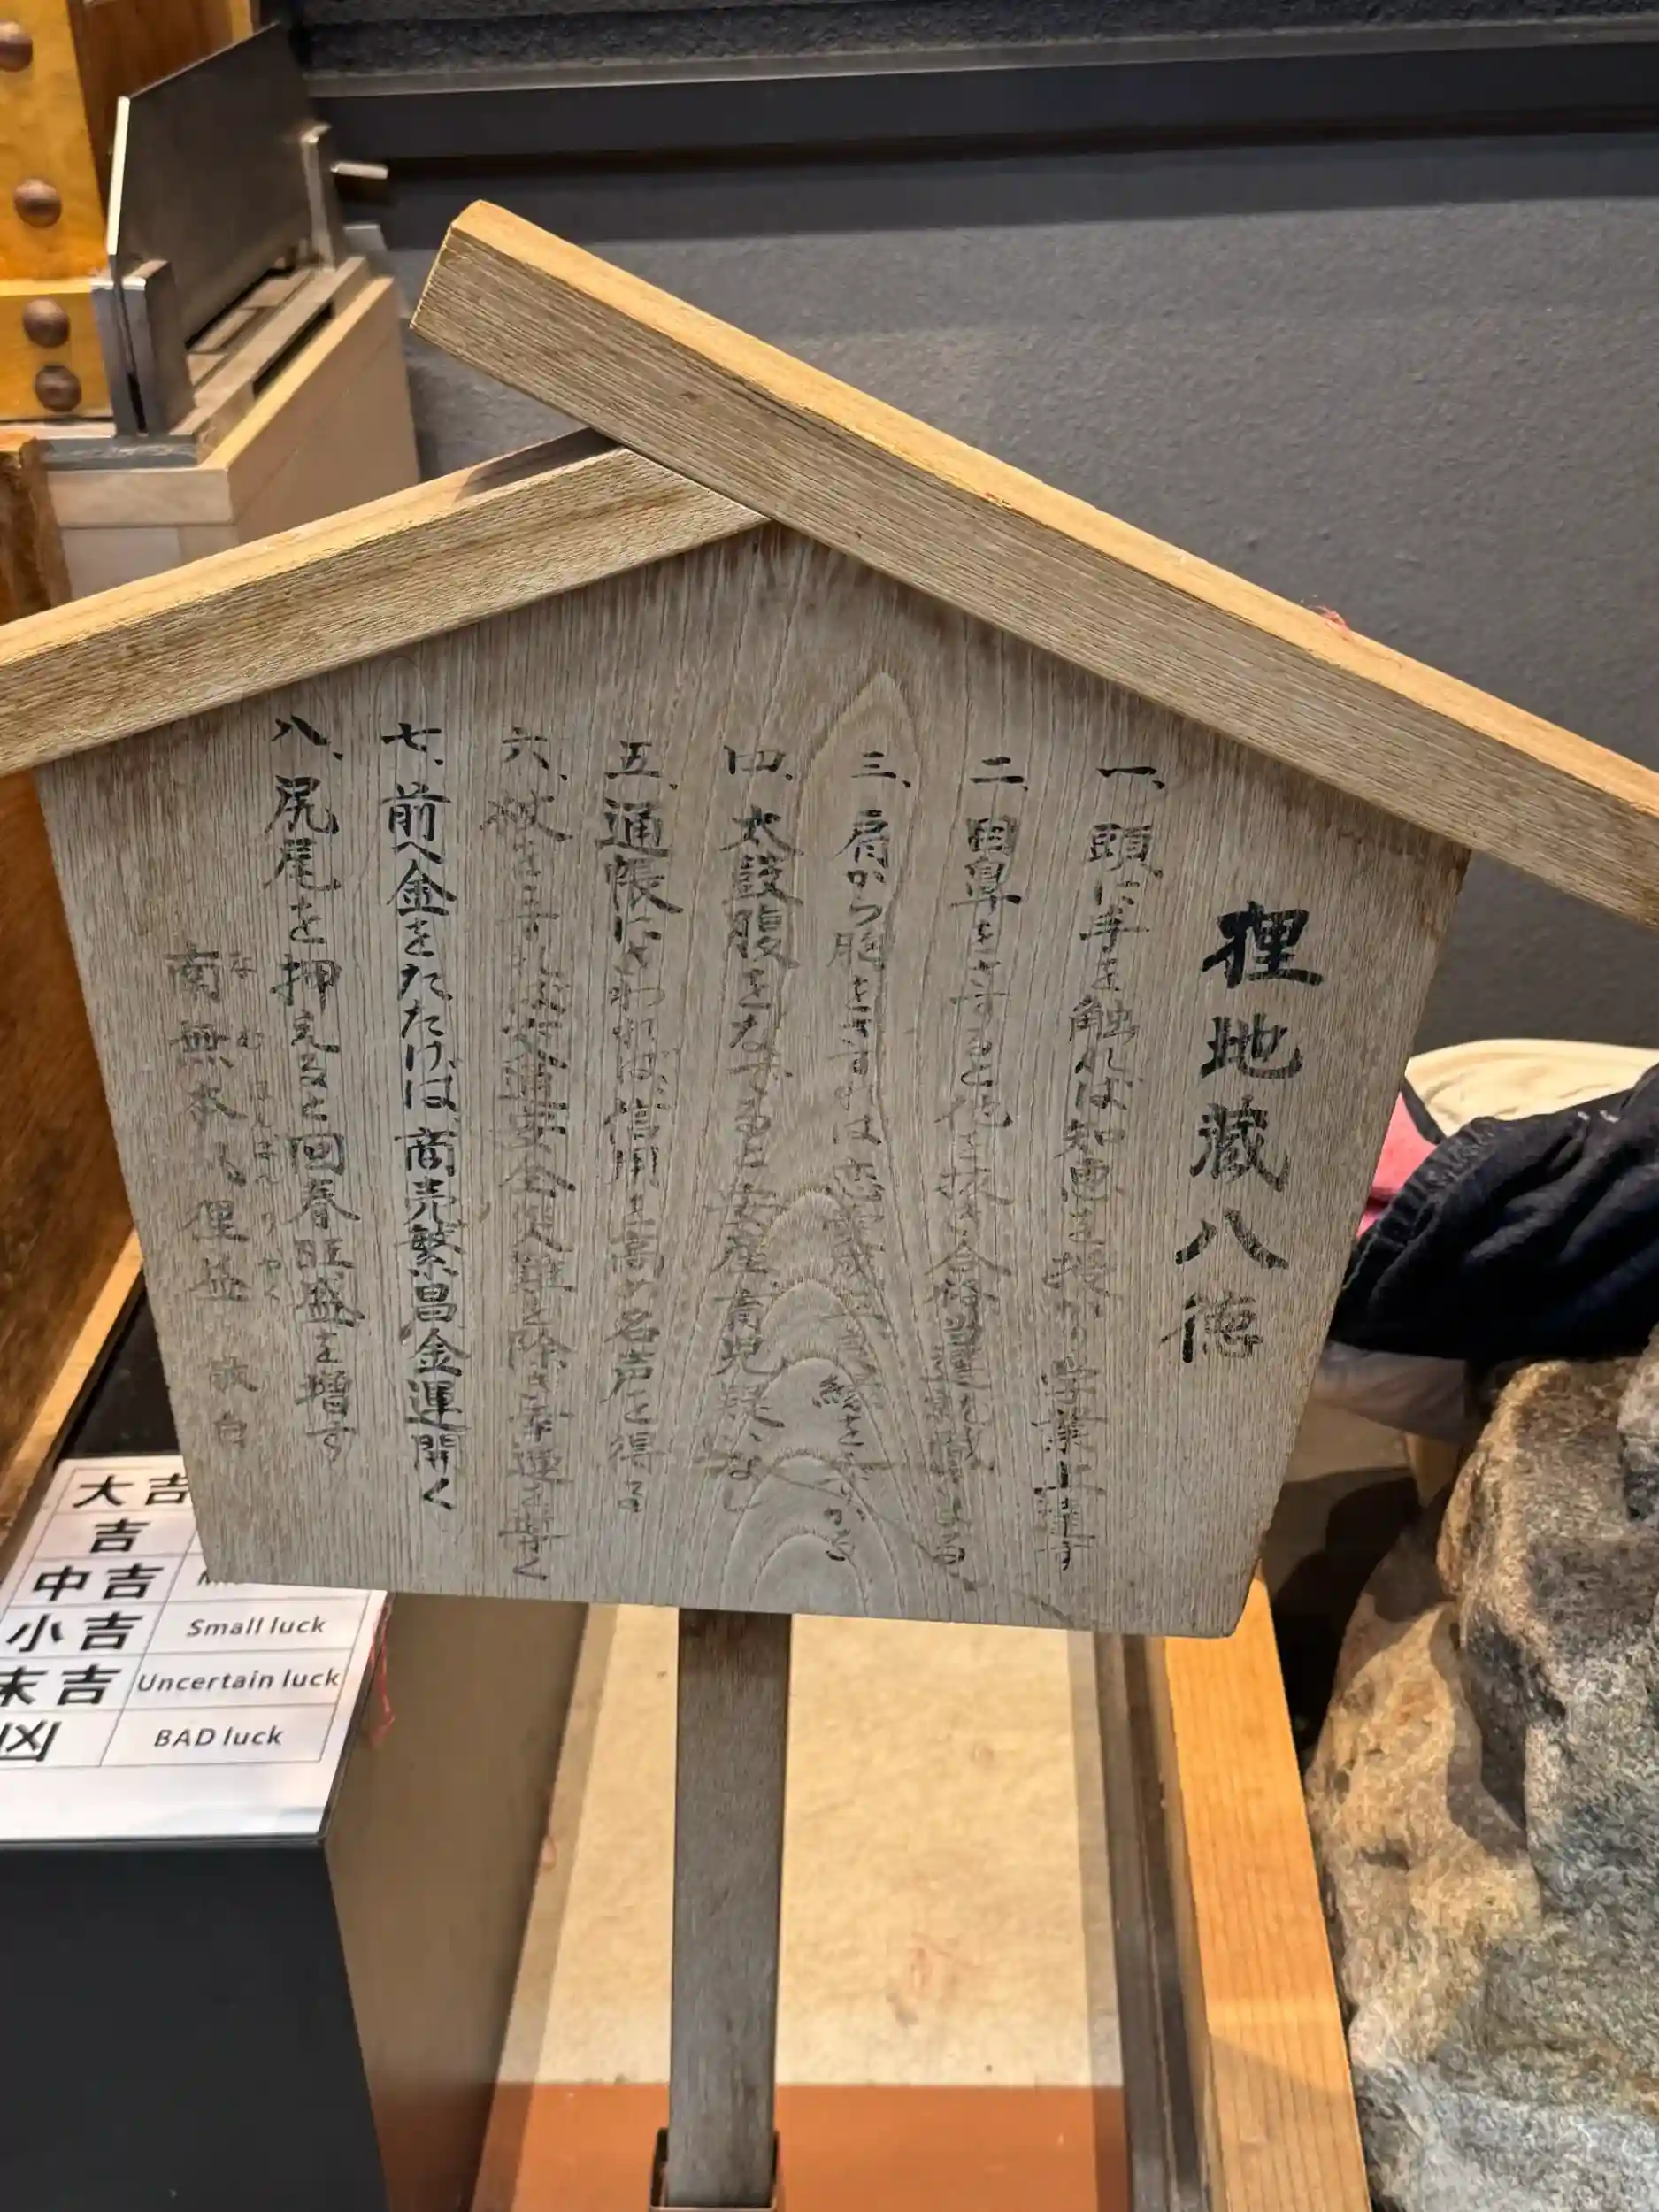 狸地蔵八徳
一、頭に手を触れば知恵を授かり学業上達す
二、目鼻をさすると他を抜き合格出世を成
三、肩から胸をさすれば恋愛成
四、太鼓腹をなでると安産育児疑いなし
五、通帳にさわれば信用を高め名声を得る
六、破をさすれば交通安全災難を除き幸運を導く
七、前へ金をたたけば商売繁昌金運開く
八、尻尾を押えると回春旺盛を増す
南無本 狸益 敬白
なむ ほんぽん りやく
大吉
吉
中吉
小吉 Small luck
末吉 Uncertain luck
凶 BAD luck